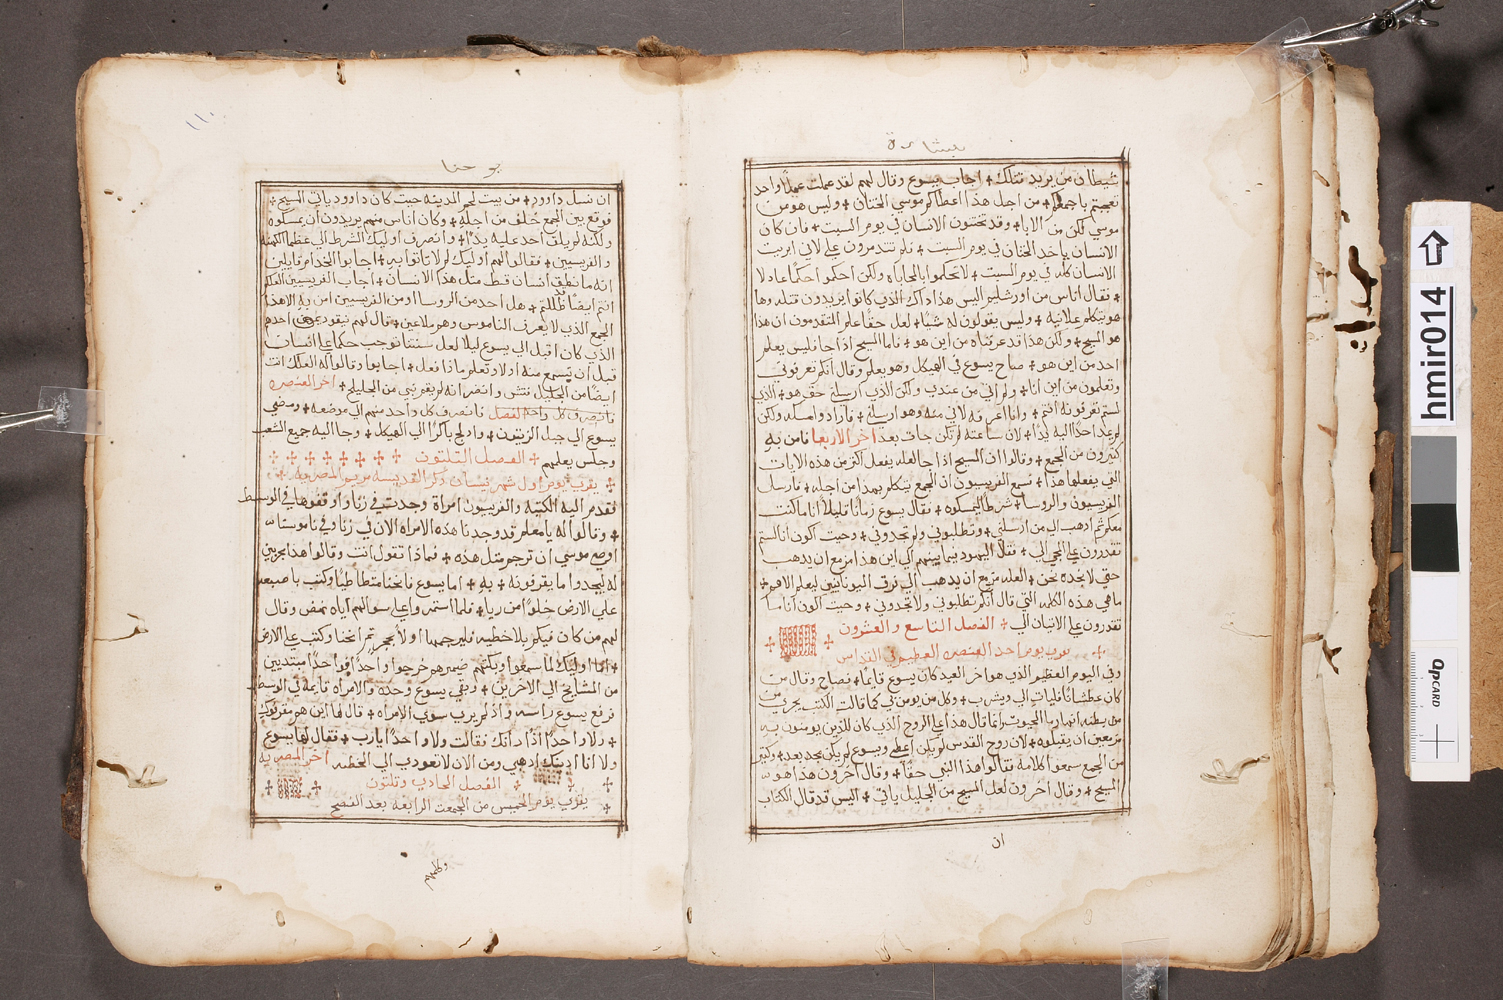 بشارة
شيطان من يريد قتلك + اجاب يسوع وقال لهم لقد عملت عملاً واحد
تعجبتم باجمعكم + من اجل هذا اعطاكم موسي الختان + وليس هو من
موسي لكن من الابا + وقد تختنون الانسان في يوم السبت + فان كان
الانسان ياخد الختان في يوم السبت + فلم تتدمرون علي لاني ابريت
الانسان كله في يوم السبت + لا تحكموا بالمحاباه ولكن احكموا حكمًا عادلا
+ فقال اناس من اورشليم اليس هذا داك الذي كانوا يريدون قتله وها
هو يتكلم علانيه + وليس يقولون له شيا + لعل حقًا علم المتقدمون ان هذا
هو المسيح + ولكن هذا قد عرفناه من اين هو + فاما المسيح اذا جا فليس يعلم
احد من اين هو + صاح يسوع في الهيكل وهو يعلم وقال انكم تعرفوني
وتعلمون من اين انا + ولم اتي من عندي ولكن الذي ارسلني حق هو + الذي
لستم تعرفونه انتم + وانا اعرفه لاني منه وهو ارسلني + فارادوا مسكه ولكن
لم يمد احدًا اليه يدًا + لان ساعته لم تكن جات بعد اخر الاربعا فامن به
كثيرون من الجمع + وقالوا ان المسيح اذا جا لعله يفعل اكثر من هذه الايات
التي يفعلها هذا + فسمع الفريسيون ان الجمع يتكلم بهذا من اجله + فارسل
الفريسيون والروسا + شرطا ليمسكوه + فقال يسوع زمانًا قليلاً انا ماكث
معكم ثم ادهب الي من ارسلني + وتطلبوني ولا تجدوني + وحيت اكون انا لستم
تقدرون علي المجي الي + فقال اليهود فيما بينهم الي اين هذا مزمع ان يدهب
حتي لا نجده نحن + العله مزمع ان يدهب الي فرق اليونانيين ليعلم الامم +
ما هي هذه الكلمه التي قال انكم تطلبوني ولا تجدوني + وحيت اكون انا ما
تقدرون علي الاتيان الي + الفصل التاسع والعشرون
+ يقرب يوم احد العنصره العظيم في القداس
وفي اليوم العظيم الذي هو اخر العيد كان يسوع قايمًا + فصاح وقال من
كان عطشانًا فليات الي ويشرب + وكل من يومن بي كما قالت الكتب يجري من
من بطنه انهار ما الحيوه + انما قال هذا علي الروح الذي كان للذين يومنون به
مزمعين ان يقبلوه + لان روح القدس لم يكن اعطي ويسوع لم يكن مجد بعد + وكثير
من الجمع سمعوا كلامه فقالوا هذا النبي حقًا + وقال اخرون هذا هو
المسيح + وقال اخرون لعل المسيح من الجليل ياتي + اليس قد قال الكتاب
ان
١١٠
يوحنا
ان نسل داوود + من بيت لحم المدينه حيت كان داوود ياتي المسيح +
فوقع بين الجمع خلف من اجله + وكان اناس منهم يريدون ان يمسكوه
ولكنه لم يلق احد عليه يدًا + وانصرف اوليك الشرط الي عظما الكهنه
والفريسيين + فقالوا لهم اوليك لم لا تاتوا به + اجابوا الخدام قايلين
انه ما نطق انسان قط مثل هذا الانسان + اجاب الفريسيين لعلكم
انتم ايضًا قد ظللتم + هل احد من الروسا او من الفريسيين امن به الا هذا
الجمع الذي لا يعرف الناموس وهم ملاعين + قال لهم نيقوديموس احدهم
الذي كان اقبل الي يسوع ليلاً لعل سنتنا توجب حكمًا علي انسان
قبل ان يسمع منه اولا وتعلم ماذا فعل + اجابوا وقالوا له العلك انت
ايضًا من الجليل فتش وانضر انه لم يقم نبي من الجليل + اخر العنصره
فانصرف كل واحد الفصل فانصرف كل واحد منهم الي موضعه + ومضي
يسوع الي جبل الزيتون + وادلج باكرًا الي الهيكل + وجا اليه جميع الشعب
وجلس يعلمهم + الفصل التلتون + + + + + + + +
+ يقرب يوم اول شهر نيسان ذكر القديسه مريم المصريه +
فقدم اليه الكتبه والفريسيون امراة وجدت في زنا واوقفوها في الوسط
+ وقالوا له يا معلم قد وجدنا هذه الامراه الان في زنا وفي ناموسنا
اوصي موسي ان ترجم مثل هذه + فماذا تقول انت وقالوا هذا مجربين
له ليجدوا ما يقرفونه + به + اما يسوع فانحنا متطاطيًا وكتب باصبعه
علي الارض خلوًا من ريا + فلما استمروا علي سوالهم اياه نهض وقال
لهم من كان فيكم بلا خطيه فليرجمها اولاً بحجر ثم انحنا وكتب علي الارض
+ اما اوليك لما سمعوا وبكتهم ضميرهم خرجوا واحدًا فواحدًا مبتديين
من المشايخ الي الاخرين + وبقي يسوع وحده والامراه قايمه في الوسط
فرفع يسوع راسه واذ لم يري سوي الامراه + قال لها اين هم مقرفوكي
+ ولا واحدًا اذًا دانك فقالت ولا واحدًا يارب + فقال لها يسوع
ولا انا ادينك ادهبي ومن الان لا تعودي الي الخطيه اخر المصريه
+ الفصل الحادي وتلتون +
+ يقرب يوم الخميس من الجمعة الرابعه بعد الفصح
وكلمهم